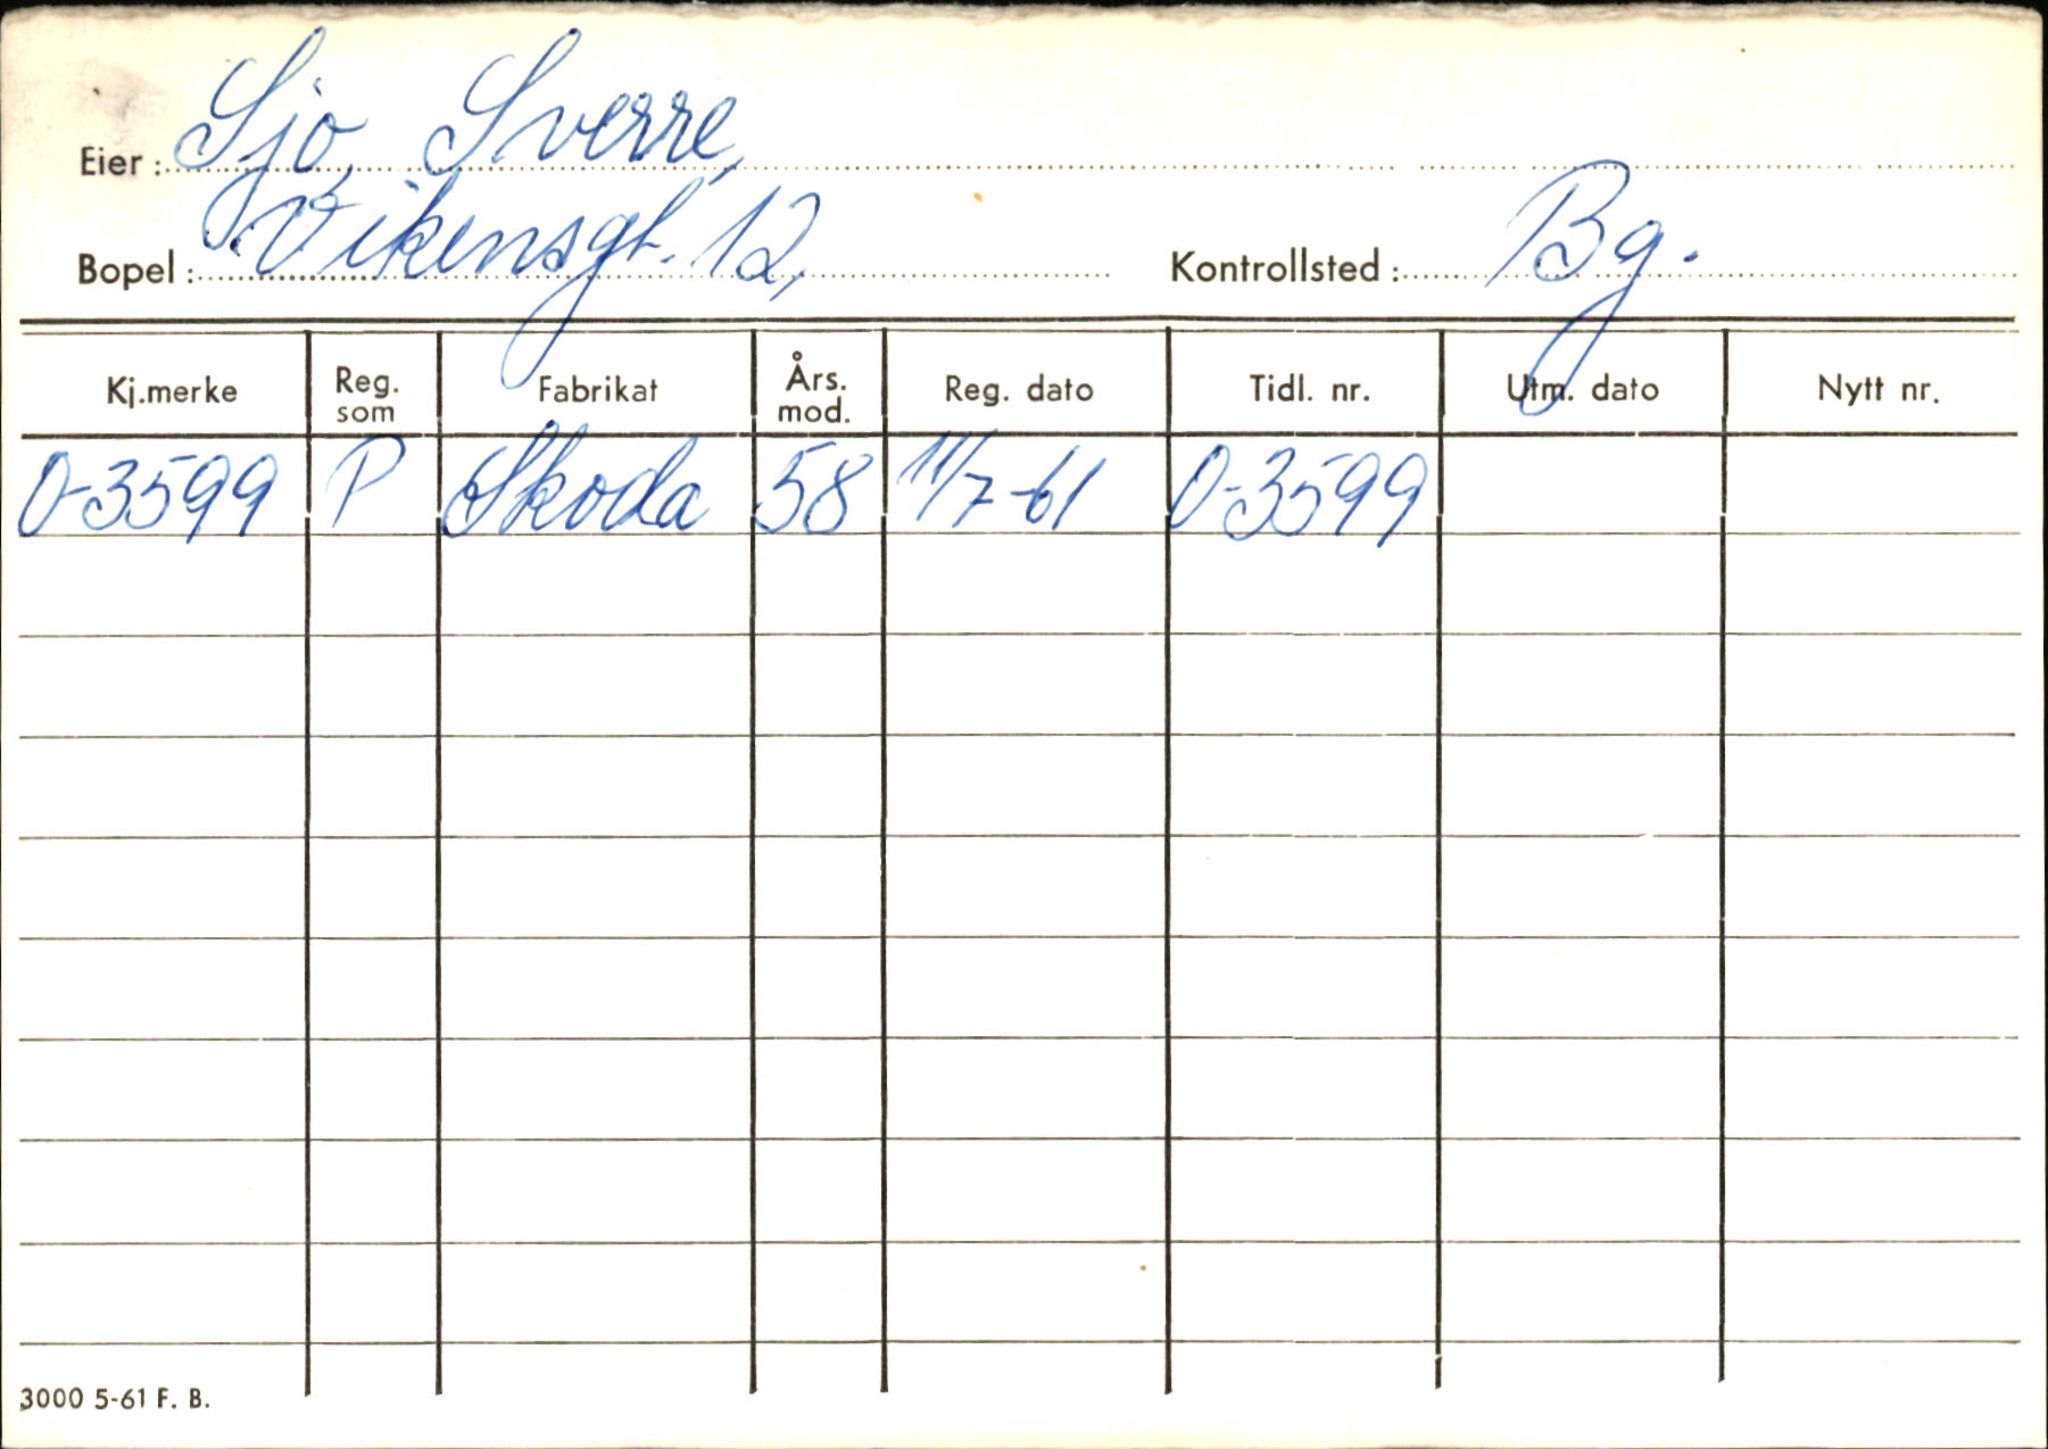 Eier: Sjo, Sverre,
Bopel: Vikensgt. 12, Kontrollsted: Bg.
Kj.merke Reg. som Fabrikat Års. mod. Reg. dato Tidl. nr. Utm. dato Nytt nr.
O-3599 P Skoda 58 11/7-61 O-3599
3000 5-61 F. B.